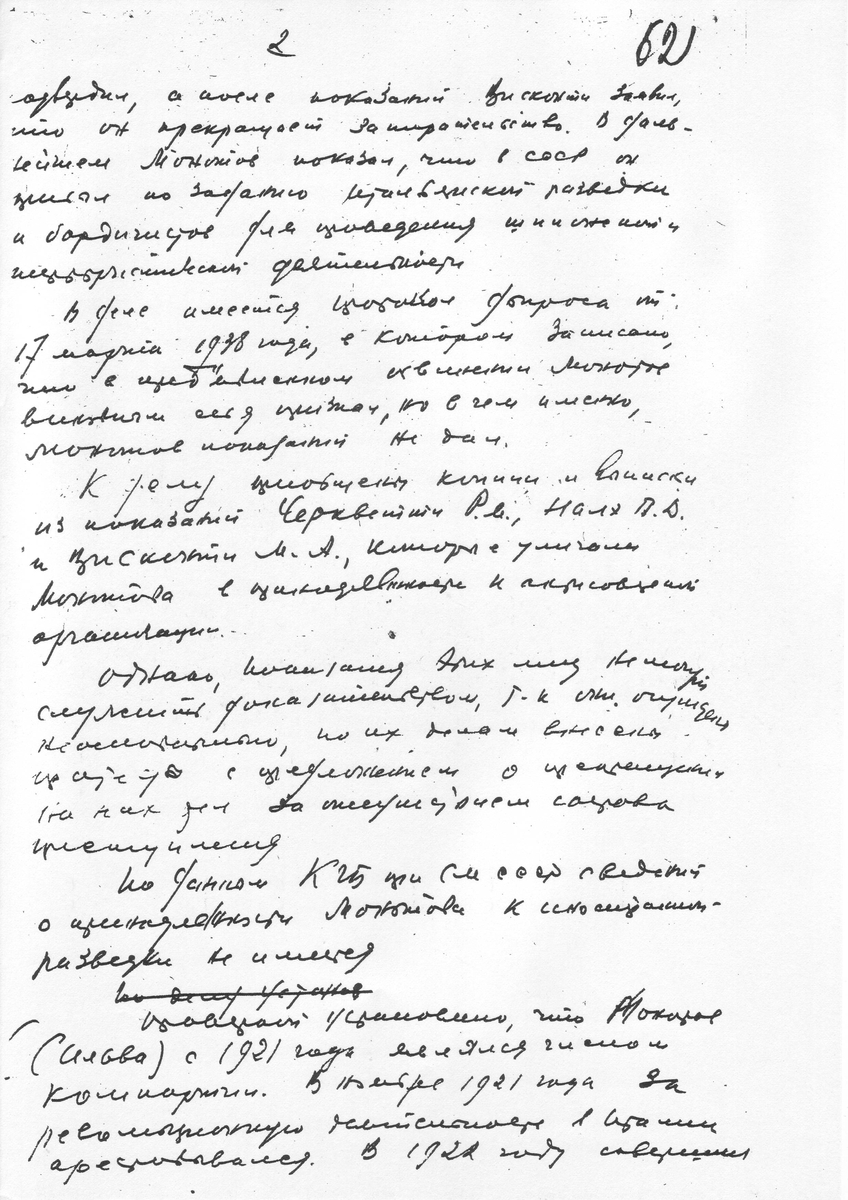 2 62
а после показаний Висконти заявил,
что он прекращает запирательство. В даль-
нейшем Монотов показал, что в СССР он
прибыл по заданию итальянской разведки
и бордигистов для проведения шпионской и
террористической деятельности
В деле имеется протокол допроса от
17 марта 1938 года, в котором записано,
что в предъявленном обвинении Монотов
виновным себя признал, но в чем именно,
Монотов показаний не дал.
К делу приобщены копии и выписки
из показаний Черкветти Р.М., П.Д.
и Висконти М.А., которые уличали
Монотова в принадлежности к антисоветской
организации.
Однако, показания этих лиц не могут
служить доказательством, т.к. они осуждены
неосновательно, по их делам внесены
протесты с предложением о прекращении
на них дел за отсутствием состава
преступления
По данным КГБ при СМ СССР сведений
о принадлежности Монотова к иностранной
разведки не имеется
По делу установ
Проверкой установлено, что Монотов
(Сильва) с 1921 года являлся членом
компартии. В ноябре 1921 года за
революционную деятельность в Италии
арестовывался. В 1922 году совершил